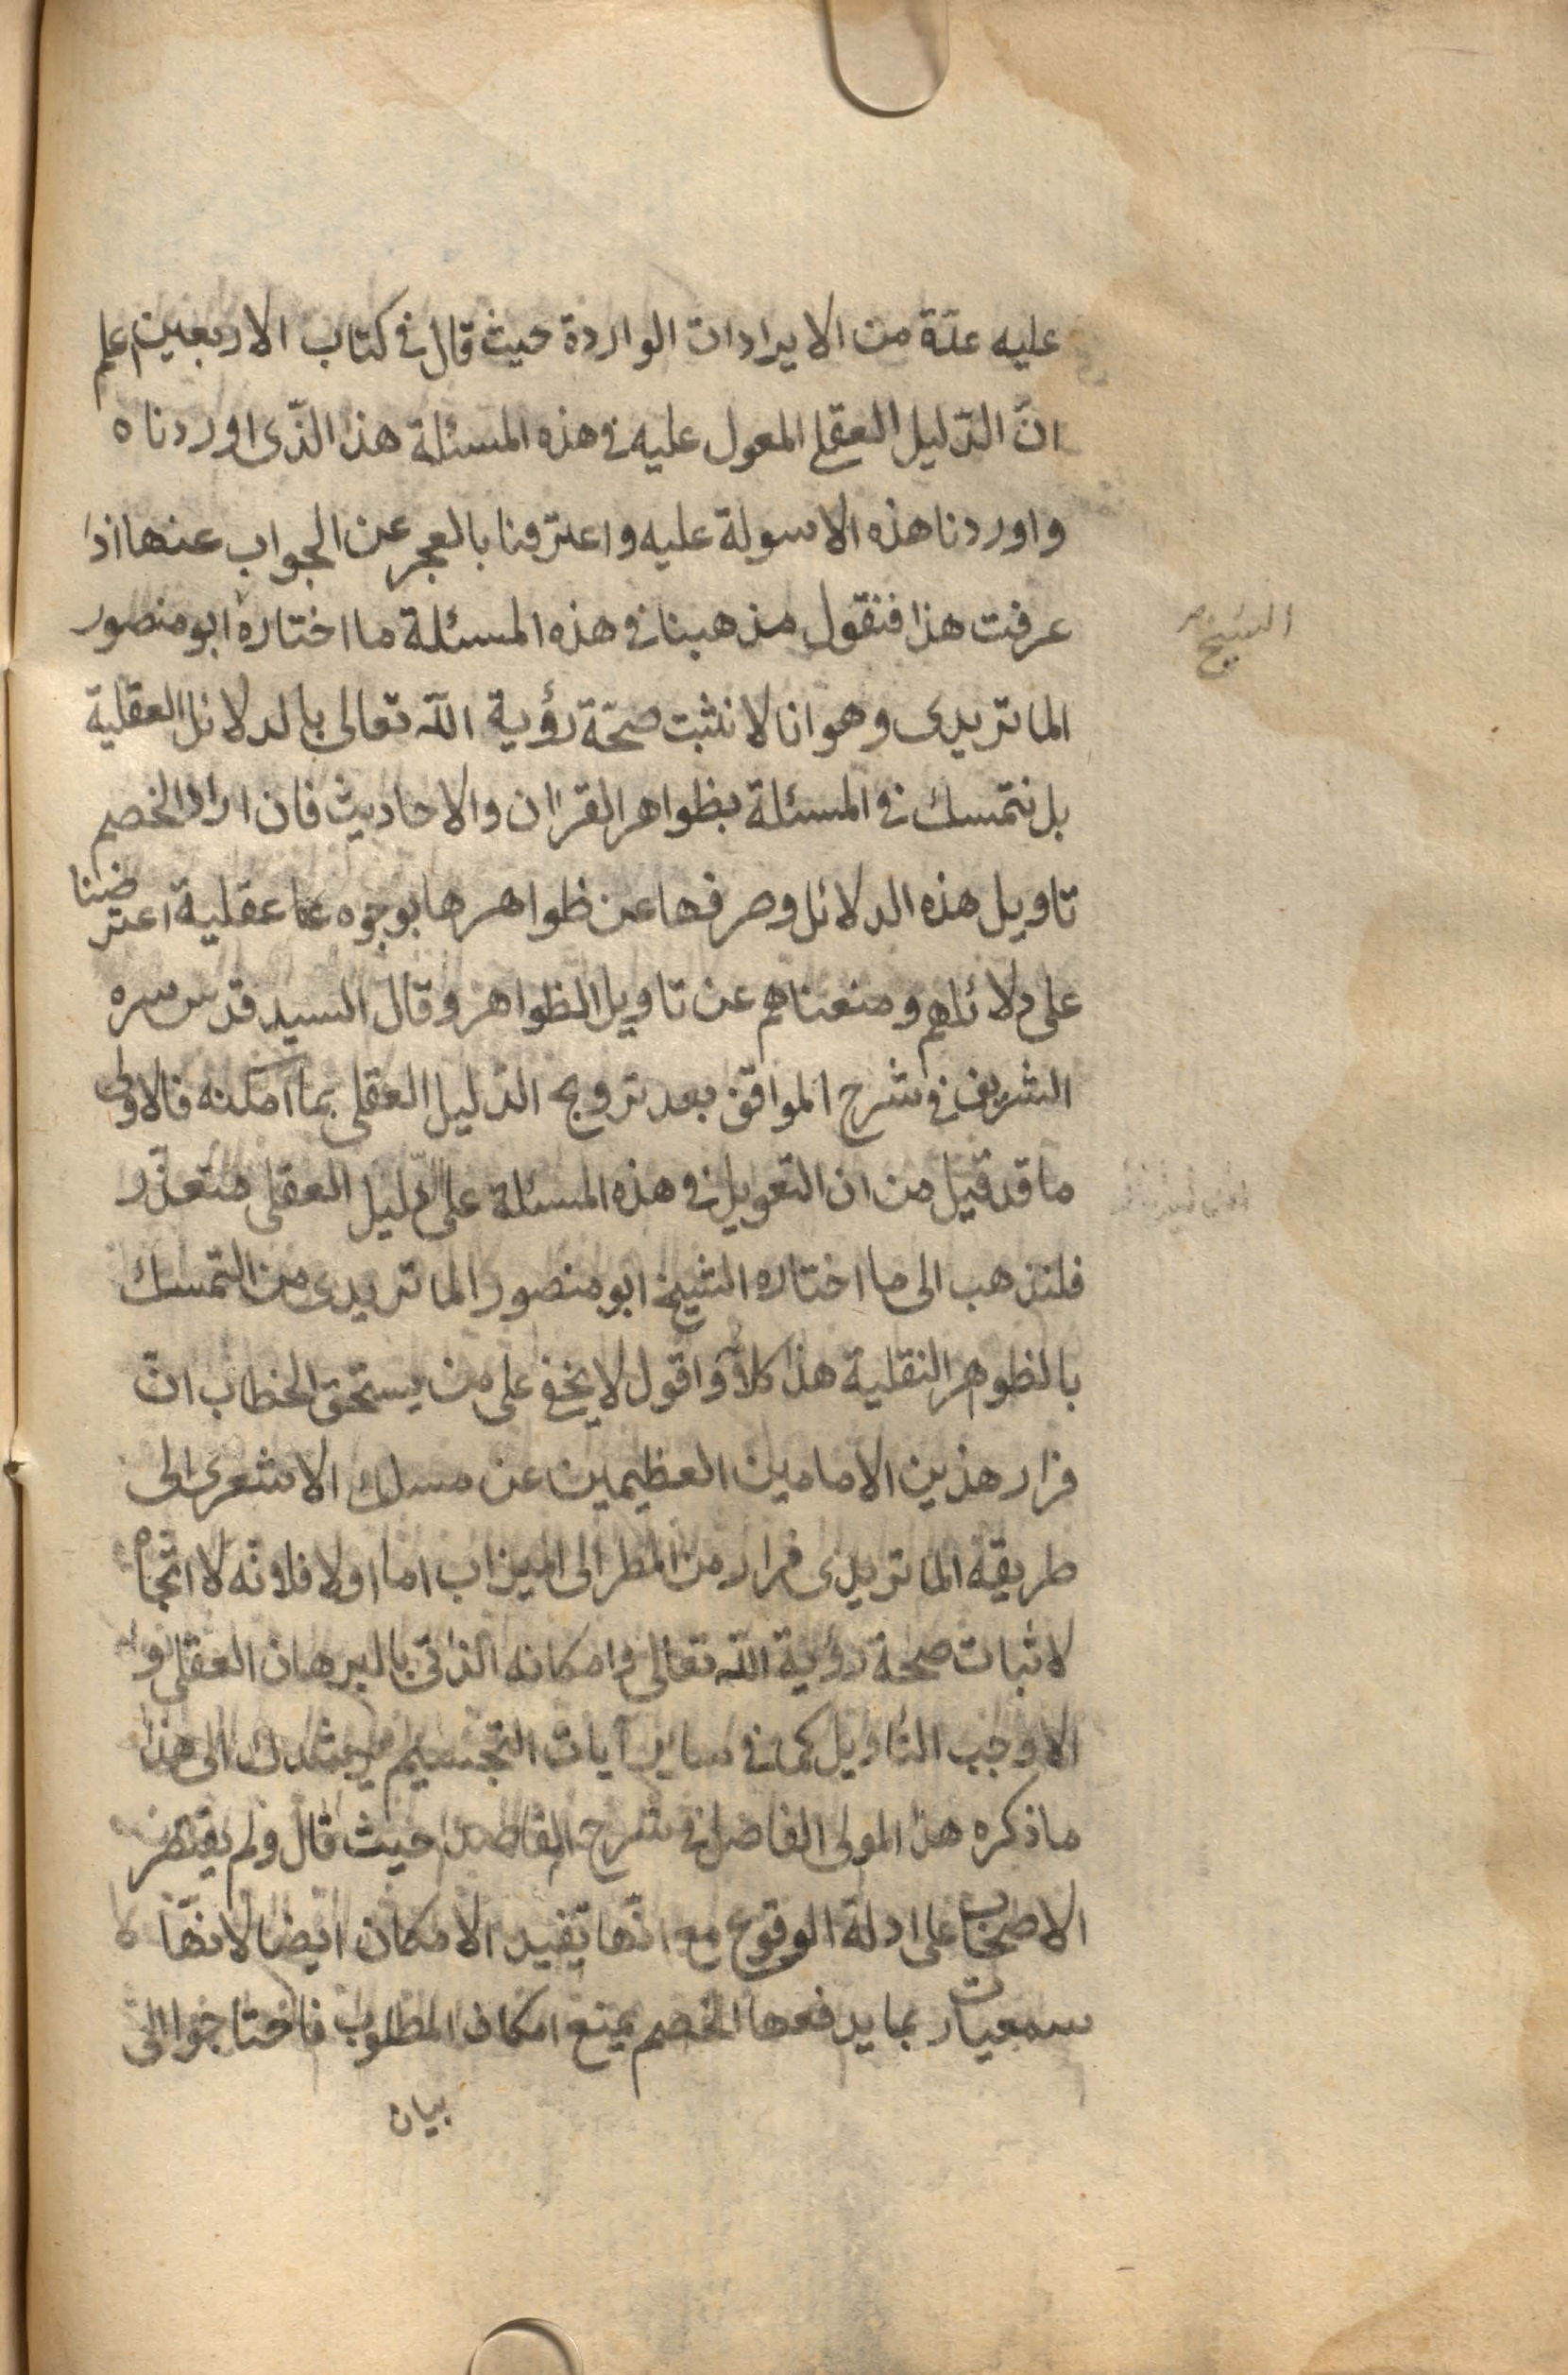 عليه عدّة من الايرادات الواردة حيث قال فى كتاب الاربعين اعلم
انّ الدّليل العقلى المعول عليه فى هذه المسئلة هذا الذّى اوردناه
واوردنا هذه الاسولة عليه واعترفنا بالعجز عن الجواب عنها اذا
عرفت هذا فنقول مذهبنا فى هذه المسئلة ما اختاره ابو منصور
الشيخ
الماتريدى وهو انا لا نثبت صحّة رؤية اللّه تعالى بالدلائل العقلية
بل نتمسك فى المسئلة بظواهر القرآن والاحاديث فان اراد الخصم
تاويل هذه الدلائل وصرفها عن ظواهرها بوجوه عقلية اعترضنا
على دلائلهم ومنعناهم عن تاويل الظواهر وقال السيد قدس سره
الشريف فى شرح المواقف بعد ترويج الدّليل العقلى بما امكنه فالاولى
ما قد قيل من ان التعويل فى هذه المسئلة على الدّليل العقلى متعذّر
فلنذهب الى ما اختاره الشيخ ابو منصور الماتريدى من التمسك
بالظوهر النقلية هذا كلامه واقول لا يخفى على من يستحق الخطاب انّ
فرار هذين الامامين العظيمين عن مسلك الاشعرى الى
طريقة الماتريدى فرار من المطر الى الميزاب اما اولا فلانّه لا اتجاه
لاثبات صحة رؤية اللّه تعالى وامكانه الذاتى بالبرهان العقلى و
الا وجب التاويل كما فى ساير آيات التجسيم يرشدك الى هذا
ما ذكره هذا المولى الفاضل فى شرح المقاصد حيث قال ولم يقتصر
الاصحاب على ادلة الوقوع مع انّها تفيد الامكان ايضا لانّها
سمعيات ربما يدفعها الخصم بمنع امكان المطلوب فاحتاجوا الى
بيان